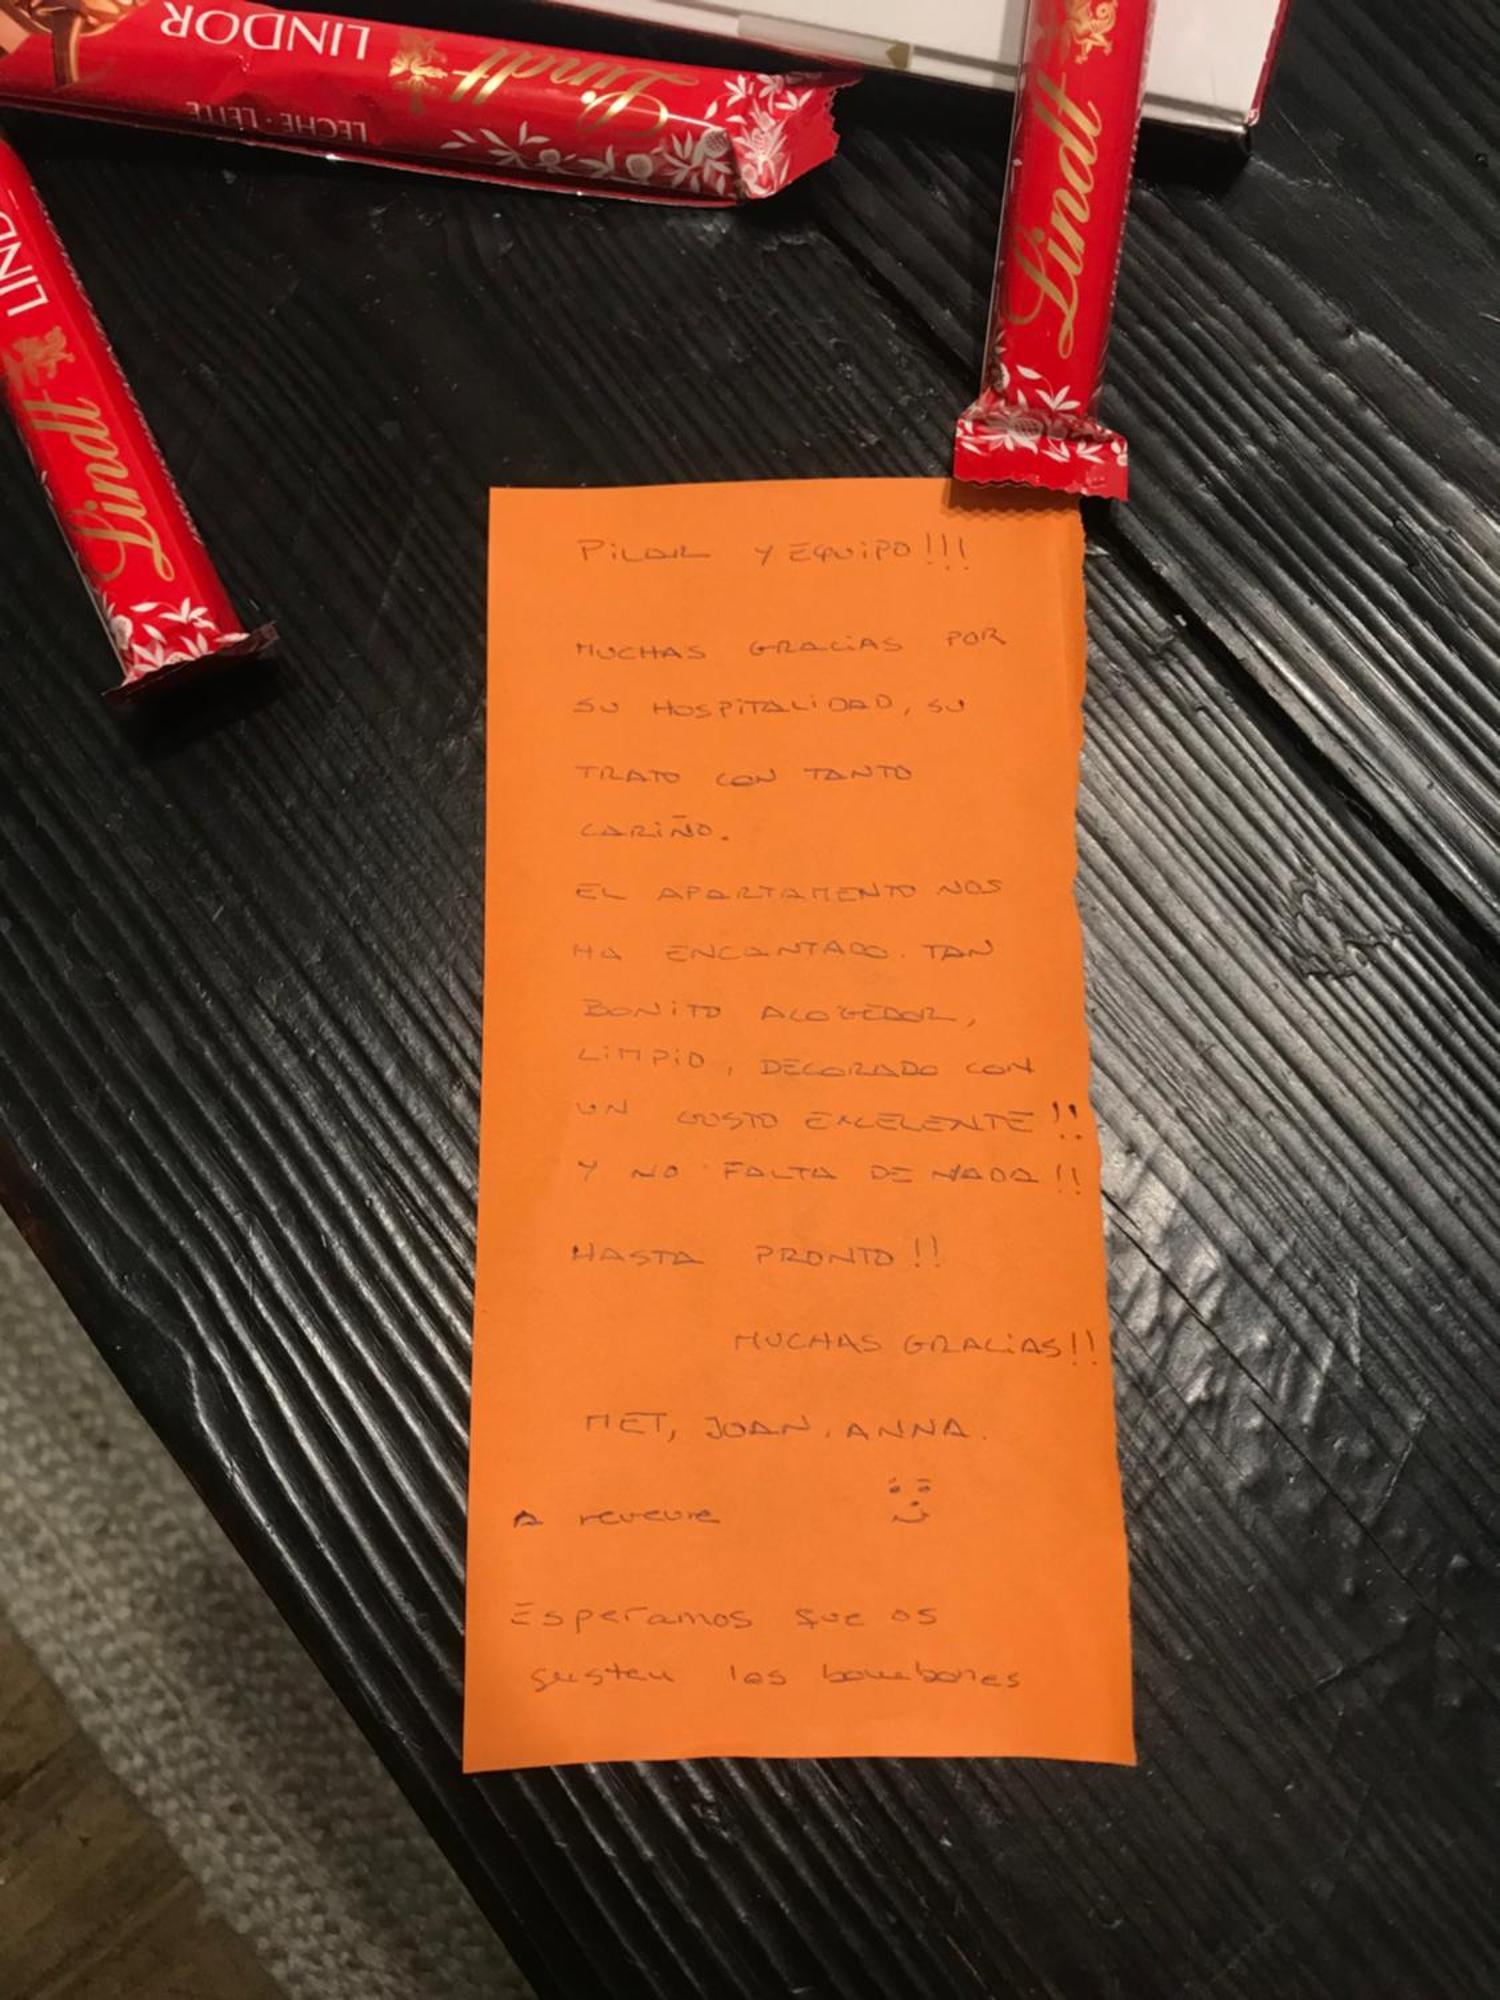 LINDOR
Lindt
LECHE · LEITE
Lindt
LIND
Lindt
PILAR Y EQUIPO!!!
MUCHAS GRACIAS POR
SU HOSPITALIDAD, SU
TRATO CON TANTO
CARIÑO.
EL APARTAMENTO NOS
HA ENCANTADO. TAN
BONITO ACOGEDOR,
LIMPIO, DECORADO CON
UN GUSTO EXCELENTE!!
Y NO FALTA DE NADA!!
HASTA PRONTO!!
MUCHAS GRACIAS!!
MET, JOAN, ANNA.
A reveure
Esperamos que os
gusten los bombones